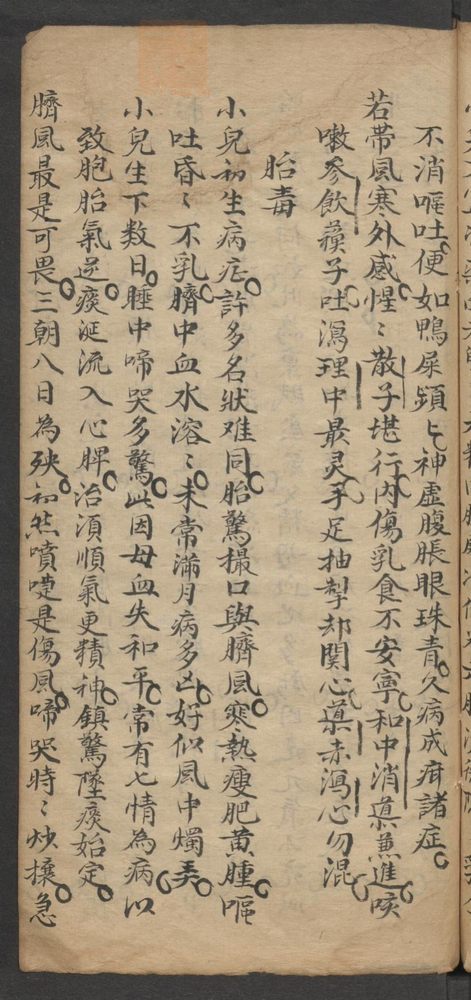 不消嘔吐便如鴨屎頻乜神虛腹脹眼珠青久病成疳諸症
若帶風寒外感惺〻散子堪行內傷乳食不安寧和中消導兼進咳
嗽參飲蘓子吐瀉理中最灵手足抽掣却関心導赤瀉心勿混
胎毒
小兒初生病症許多名狀难同胎驚撮口與臍風寒熱瘦肥黃腫嘔
吐昏〻不乳臍中血水溶〻未常滿月病多凶好似風中燭弄
小兒生下数日睡中啼哭多驚此因母血失和平常有七情為病以
致胞胎氣逆痰涎流入心脾治湏順氣更積神鎮驚墜痰始定
臍風最是可畏三朝八日為殃初然噴嚏是傷風啼哭時〻炒擾急